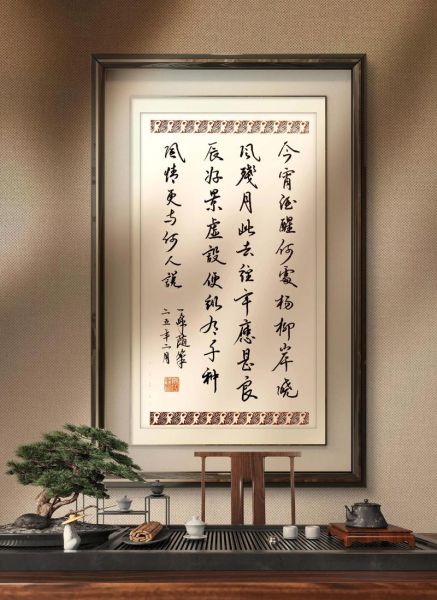 今宵酒醒何處楊柳岸曉
風殘月此去經年應是良
辰好景虛設便縱有千種
風情更与何人說
隨筆
二五年二月